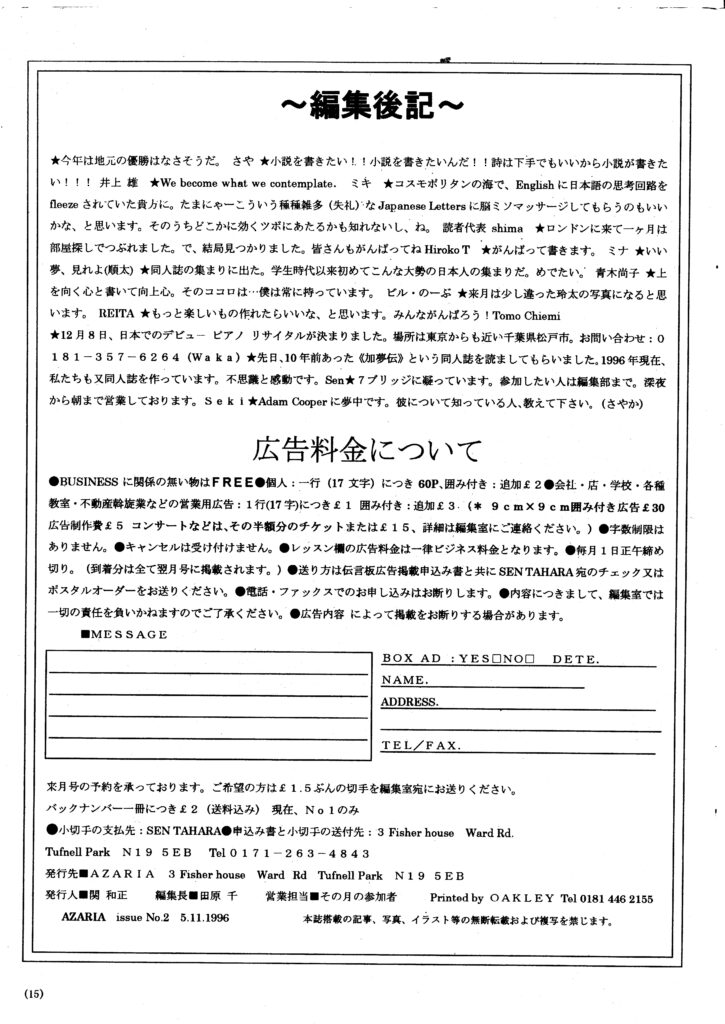 ～編集後記～
★今年は地元の優勝はなさそうだ。 さや ★小説を書きたい！！小説を書きたいんだ！！詩は下手でもいいから小説が書きた
い！！！ 井上 雄 ★We become what we contemplate． ミキ ★コスモポリタンの海で、Englishに日本語の思考回路を
fleezeされていた貴方に。たまにゃーこういう種種雑多（失礼）なJapanese Lettersに脳ミソマッサージしてもらうのもいい
かな、と思います。そのうちどこかに効くツボにあたるかも知れないし、ね。 読者代表 shima ★ロンドンに来て一ヶ月は
部屋探しでつぶれました。で、結局見つかりました。皆さんもがんばってね Hiroko T ★がんばって書きます。 ミナ ★いい
夢、見れよ(順太) ★同人誌の集まりに出た。学生時代以来初めてこんな大勢の日本人の集まりだ。めでたい。 青木尚子 ★上
を向く心と書いて向上心。そのココロは…僕は常に持っています。 ビル・のーぶ ★来月は少し違った玲太の写真になると思
います。 REITA ★もっと楽しいもの作れたらいいな、と思います。みんながんばろう！Tomo Chiemi
★12月8日、日本でのデビュー ピアノ リサイタルが決まりました。場所は東京からも近い千葉県松戸市。お問い合わせ：０
１８１－３５７－６２６４（Ｗａｋａ）★先日、10年前あった《加夢伝》という同人誌を読ましてもらいました。1996年現在、
私たちも又同人誌を作っています。不思議と感動です。Sen★７ブリッジに凝っています。参加したい人は編集部まで。深夜
から朝まで営業しております。Ｓｅｋｉ★Adam Cooperに夢中です。彼について知っている人、教えて下さい。（さやか）
広告料金について
●BUSINESSに関係の無い物はＦＲＥＥ●個人：一行（17文字）につき60P、囲み付き：追加￡2●会社・店・学校・各種
教室・不動産斡旋業などの営業用広告：1行(17字)につき￡1 囲み付き：追加￡3（＊ 9ｃｍ×9ｃｍ囲み付き広告￡30
広告制作費￡5 コンサートなどは、その半額分のチケットまたは￡15、詳細は編集室にご連絡ください。）●字数制限は
ありません。●キャンセルは受け付けません。●レッスン欄の広告料金は一律ビジネス料金となります。●毎月1日正午締め
切り。（到着分は全て翌月号に掲載されます。）●送り方は伝言板広告掲載申込み書と共にSEN TAHARA宛のチェック又は
ポスタルオーダーをお送りください。●電話・ファックスでのお申し込みはお断りします。●内容につきまして、編集室では
一切の責任を負いかねますのでご了承ください。●広告内容 によって掲載をお断りする場合があります。
■ＭＥＳＳＡＧＥ
BOX AD ：YES□NO□ DETE.
NAME.
ADDRESS.
TEL／FAX.
来月号の予約を承っております。ご希望の方は￡１.５ぶんの切手を編集室宛にお送りください。
バックナンバー一冊につき￡2（送料込み） 現在、No1のみ
●小切手の支払先：SEN TAHARA●申込み書と小切手の送付先：3 Fisher house Ward Rd.
Tufnell Park N19 5EB Tel 0171－263－4843
発行先■ＡＺＡＲＩＡ 3 Fisher house Ward Rd Tufnell Park N19 5EB
発行人■関 和正 編集長■田原 千 営業担当■その月の参加者 Printed by OAKLEY Tel 0181 446 2155
AZARIA issue No.2 5.11.1996 本誌搭載の記事、写真、イラスト等の無断転載および複写を禁じます。
(15)